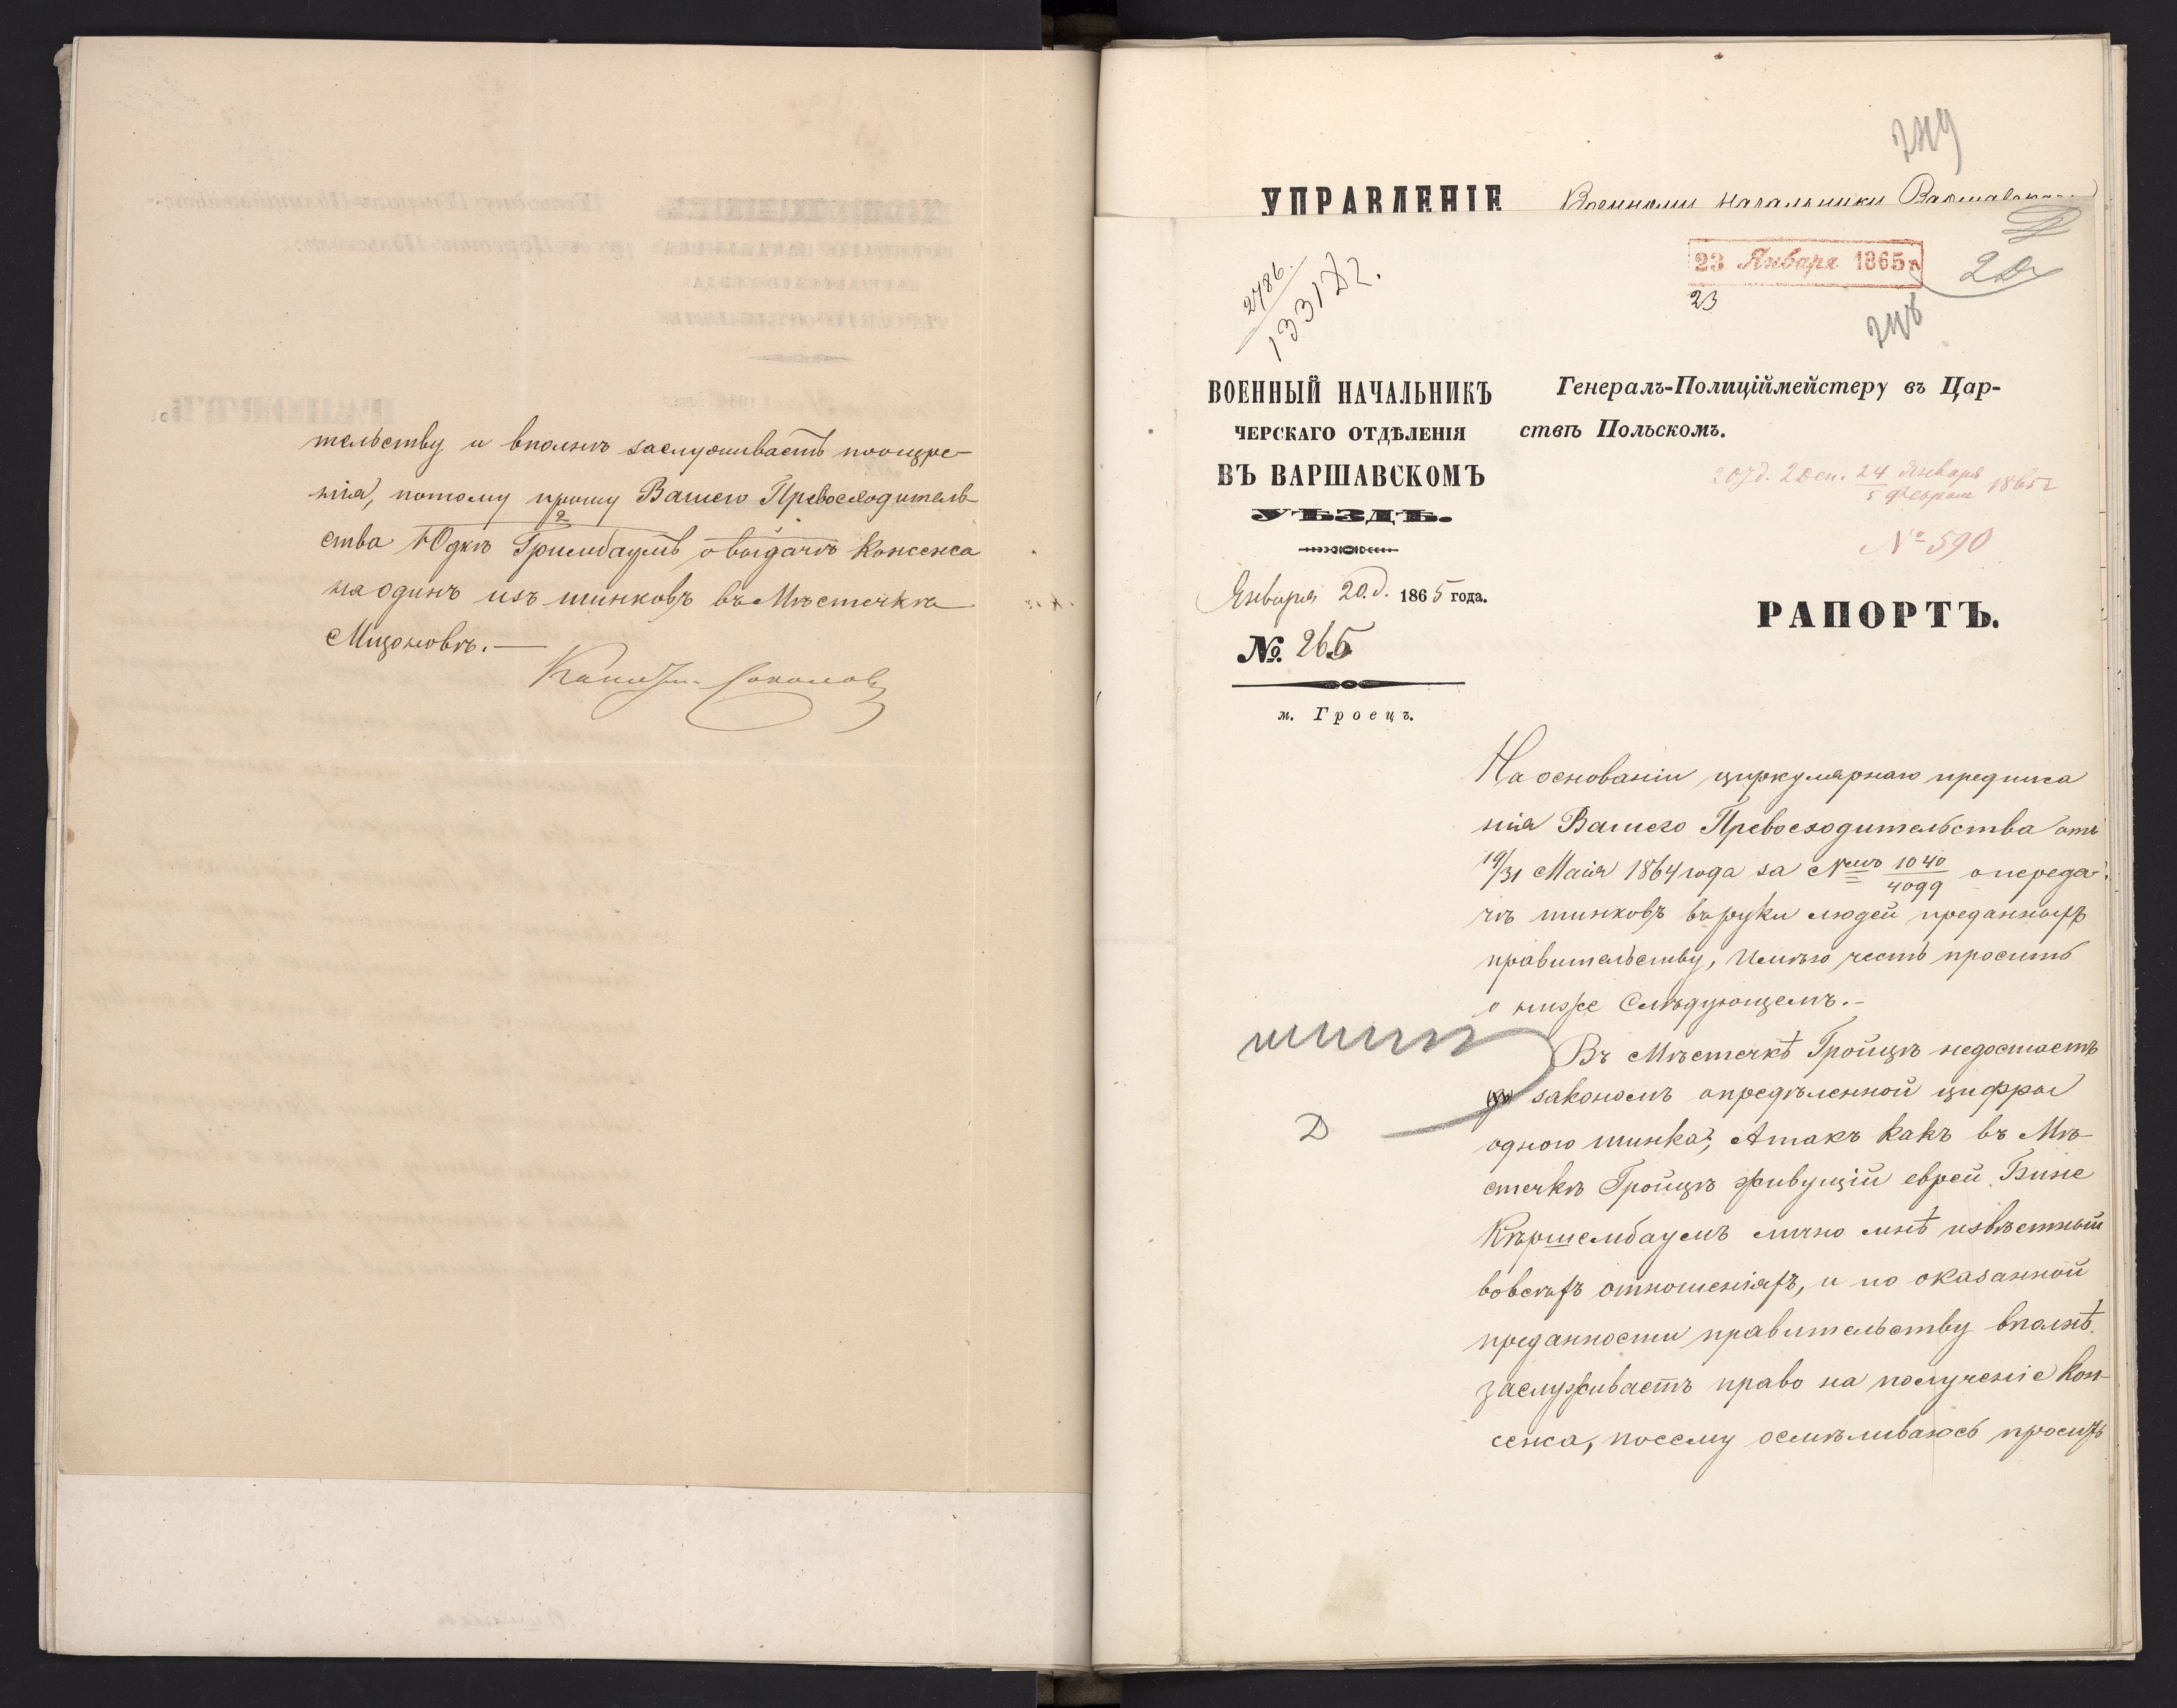 тельству и вполнѣ заслуживаетъ поощре-
нія, потому прошу Вашего Превосходитель-
ства Юдкѣ Гримбаумъ о выдачѣ консенса
на одинъ изъ шинковъ въ Мѣстечкѣ
Мщоновѣ.—
Капитанъ Соколовъ
УПРАВЛЕНІЕ
Военному Начальнику Варшавскаго
23 Января 1865 г.
23
2786.
1331 Д2.
ВОЕННЫЙ НАЧАЛЬНИКЪ
ЧЕРСКАГО ОТДѢЛЕНІЯ
ВЪ ВАРШАВСКОМЪ
УѢЗДѢ.
Января 20 д. 1865 года.
№ 265
м. Гроецъ.
Генералъ-Полиціймейстеру въ Цар-
ствѣ Польскомъ.
24 Января
5 Февраля 1865 г
№ 590
РАПОРТЪ.
На основаніи циркулярнаго предписа
нія Вашего Превосходительства отъ
19/31 Маія 1864 года за №мъ 1040/4099 о переда-
чѣ шинковъ въ руки людей преданныхъ
правительству, Имѣю честь просить
о ниже Слѣдующемъ.-
Въ Мѣстечкѣ Гройцѣ недостаетъ
закономъ опредѣленной цифры
одного шинка, А такъ какъ въ Мѣ-
стечкѣ Гройцѣ живущій еврей Бине
Кѣршембаумъ лично мнѣ извѣстный
вовсѣхъ отношеніяхъ, и по оказанной
преданности правительству вполнѣ
заслуживаетъ право на полученіе кон-
сенса, посему осмѣливаюсь просить